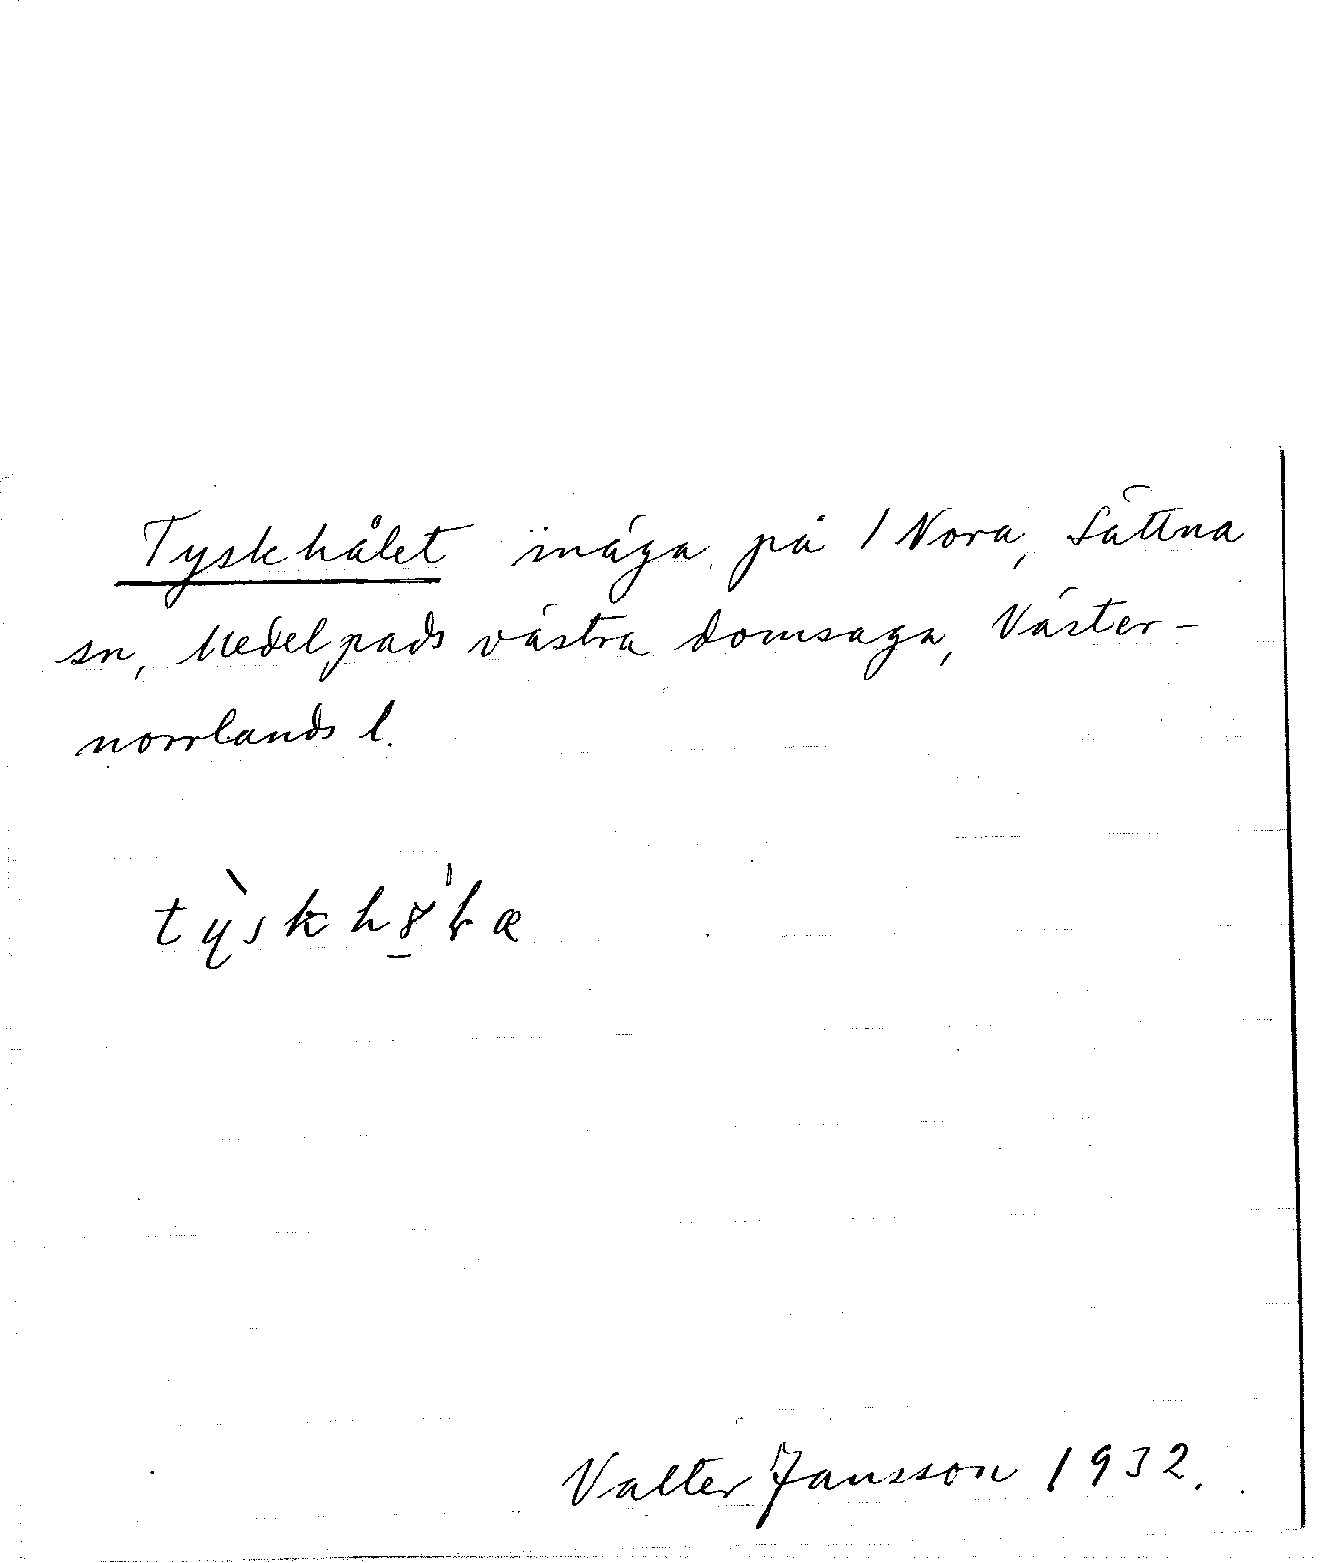 Tyskhålet inäga på 1 Nora, Sättna
sn, Medelpads västra domsaga, Väster-
norrlands l.
Valter Jansson 1932.